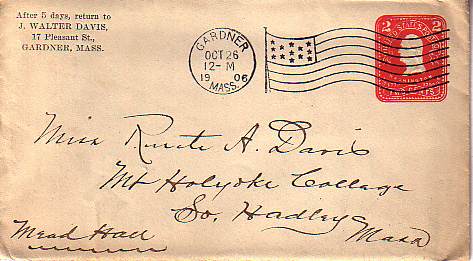 After 5 days, return to
J. WALTER DAVIS,
17 Pleasant St.,
GARDNER, MASS.
GARDNER
OCT 26
12-M
19 06
MASS.
2 UNITED STATES 2
WASHINGTON
TWO CENTS
Miss A. Davis
Mt Holyoke Collage
So. Hadley
Mead Hall
Mass